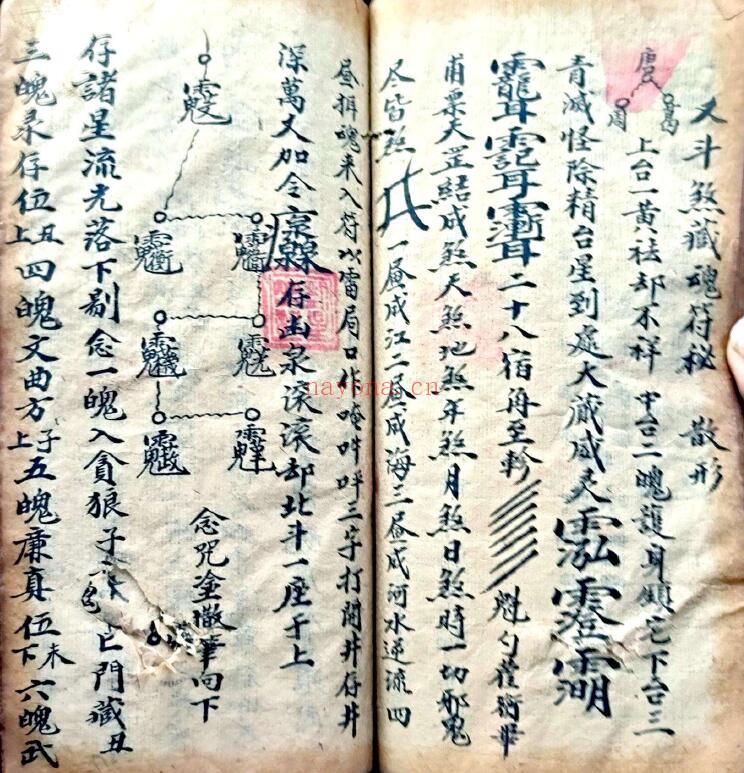 又斗煞藏魂符秘 散形
唐 葛 周
上台一黄祛却不祥 中台二魄護身鎮宅下台三
青滅怪除精台星到處大藏威灵
二十八宿角至軫 魁勺雚衡畢
甫票天罡結成煞天煞地煞年煞月煞日煞時一切邪鬼
尽皆煞 一昼成江二昼成海三昼成河水逆流四
昼捐魂来入符以雷局口作唵吽呯三字打開井存井
深萬丈加令 存出泉滚滚却北斗一座于上
念咒塗撒筆向下
存諸星流光落下剔念一魄入貪狼子 門藏丑
三魄录存位丑上四魄文曲方子上五魄廉真位未下六魄武
nayona.cn